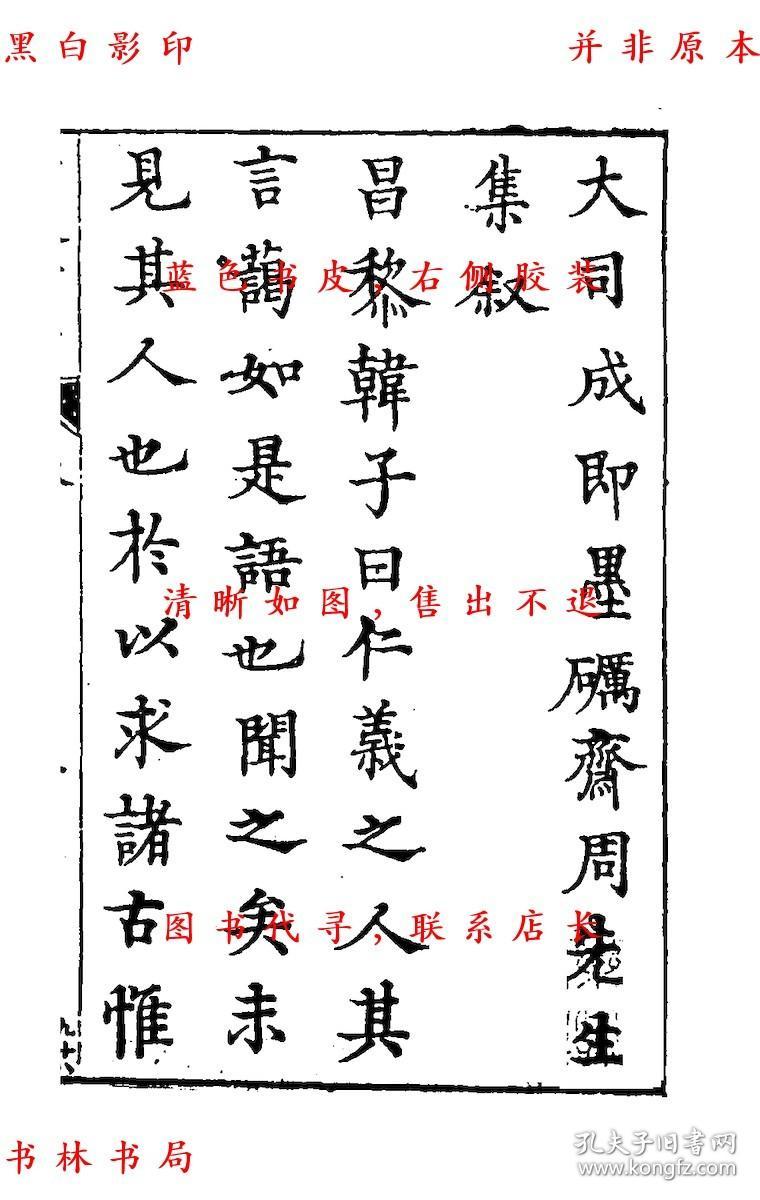 黑白影印
并非原本
大司成即墨礪齋周先生
集敘
昌黎韓子曰仁義之人其
言藹如是語也聞之矣未
見其人也於以求諸古惟
蓝色书皮，右侧胶装
清晰如图，售出不退
图书代寻，联系店长
书林书局
孔夫子旧书网
www.kongfz.com